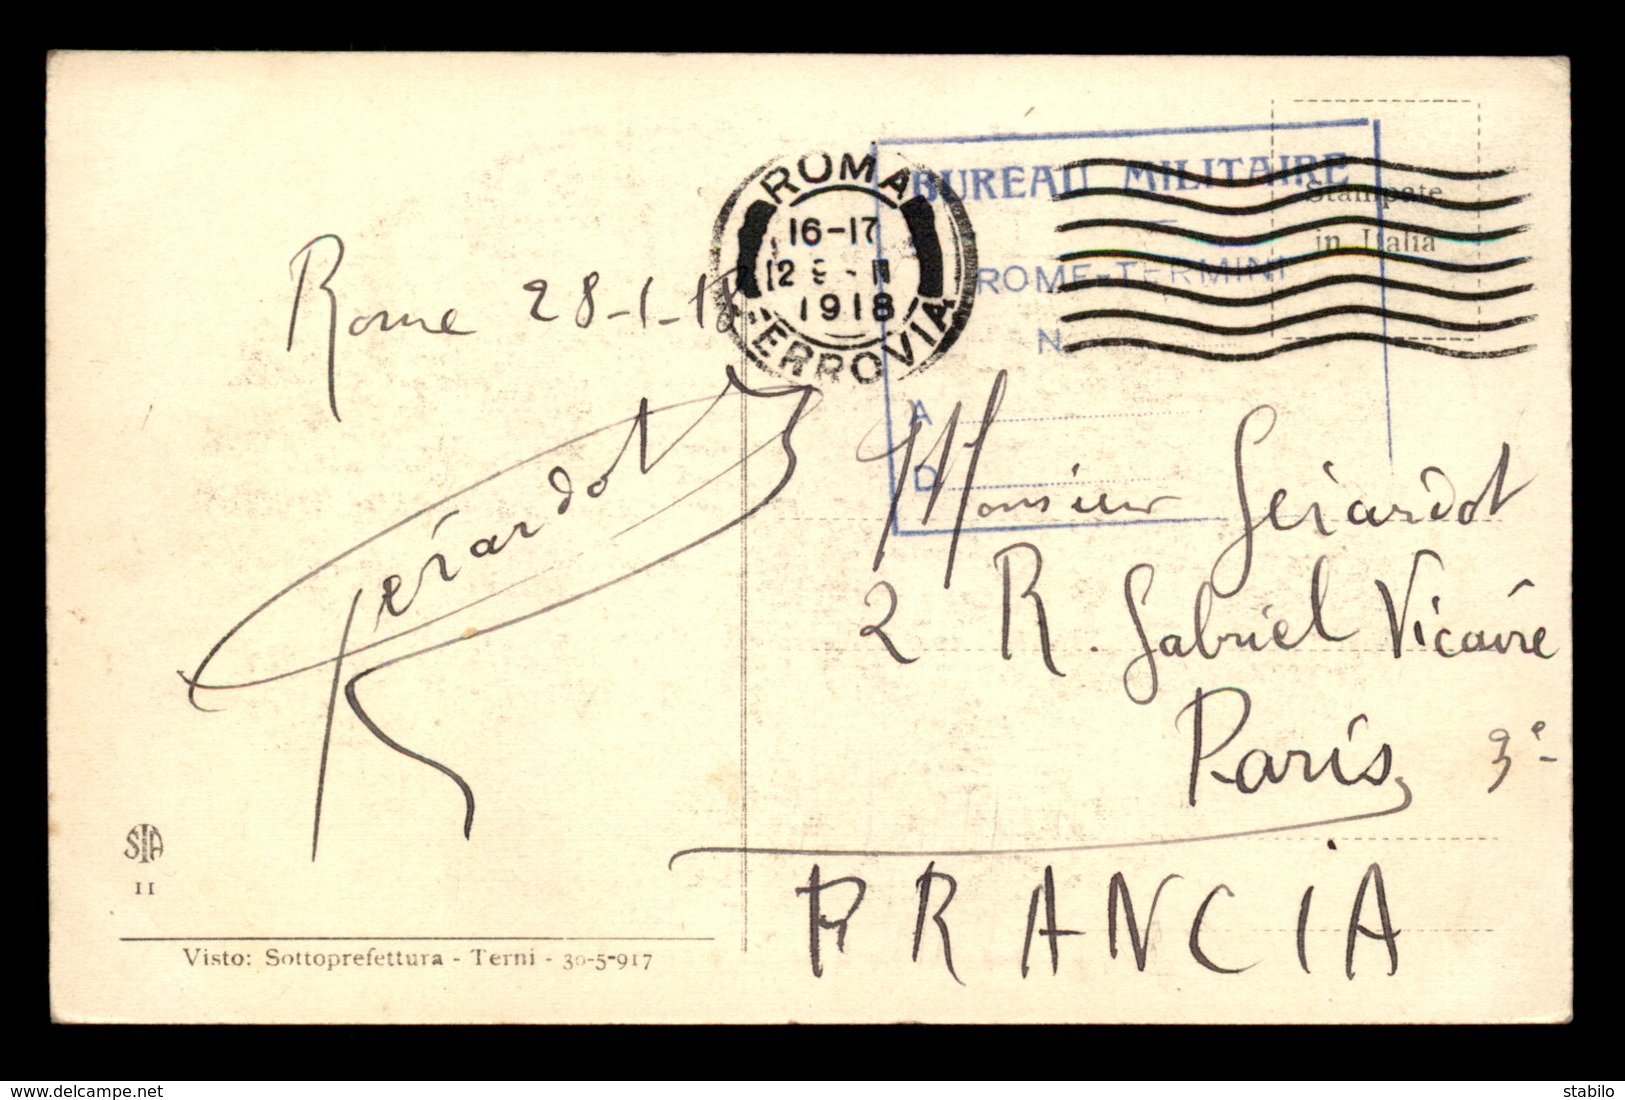 ROMA
16-17
1918
FERROVIA
BUREAU MILITAIRE
ROME-TERMINI
N.
A
D
Stampate
in Italia
Rome 28-1-18
Gérardot
Monsieur Gérardot
2 R. Gabriel Vicaire
Paris 3e
FRANCIA
STA
II
Visto: Sottoprefettura - Terni - 30-5-917
delcampe.net
stabilo